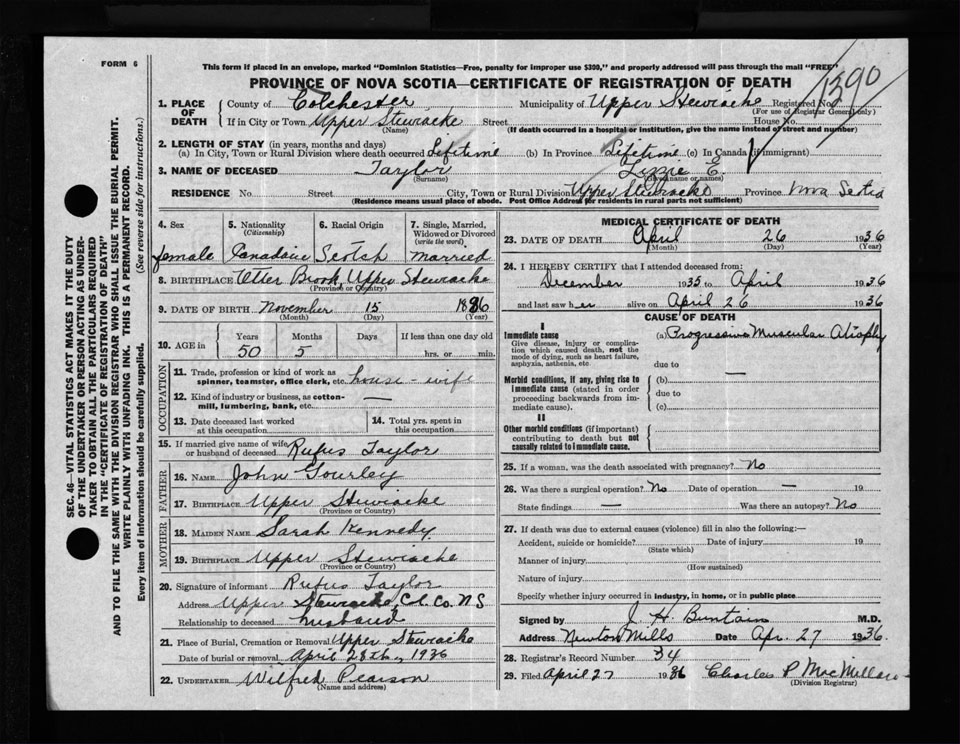 FORM 6
This form if placed in an envelope, marked "Dominion Statistics—Free, penalty for improper use $300," and properly addressed will pass through the mail "FREE"
PROVINCE OF NOVA SCOTIA—CERTIFICATE OF REGISTRATION OF DEATH
1390
1. PLACE OF DEATH County of Colchester Municipality of Upper Stewiacke Registered No.
(For use of Registrar General only)
If in City or Town Upper Stewiacke Street House No.
(Name) (If death occurred in a hospital or institution, give the name instead of street and number)
2. LENGTH OF STAY (in years, months and days)
(a) In City, Town or Rural Division where death occurred Lifetime (b) In Province Lifetime (c) In Canada (if immigrant)
3. NAME OF DECEASED Taylor Lizzie E.
(Surname) (Given name or names)
RESIDENCE No. Street City, Town or Rural Division Upper Stewiacke Province Nova Scotia
(Residence means usual place of abode. Post Office Address for residents in rural parts not sufficient)
4. Sex female
5. Nationality (Citizenship) Canadain
6. Racial Origin Scotch
7. Single, Married, Widowed or Divorced (write the word) Married
8. BIRTHPLACE Otter Brook, Upper Stewiacke
(Province or Country)
9. DATE OF BIRTH November 15 1886
(Month) (Day) (Year)
10. AGE in Years Months Days If less than one day old
50 5 hrs. or min.
OCCUPATION
11. Trade, profession or kind of work as spinner, teamster, office clerk, etc. house-wife
12. Kind of industry or business, as cotton-mill, lumbering, bank, etc. —
13. Date deceased last worked at this occupation
14. Total yrs. spent in this occupation
15. If married give name of wife or husband of deceased Rufus Taylor
FATHER
16. NAME John Gourley
17. BIRTHPLACE Upper Stewiacke
(Province or Country)
MOTHER
18. MAIDEN NAME Sarah Kennedy
19. BIRTHPLACE Upper Stewiacke
(Province or Country)
20. Signature of informant Rufus Taylor
Address Upper Stewiacke, Col. Co. N S
Relationship to deceased husband
21. Place of Burial, Cremation or Removal Upper Stewiacke
Date of burial or removal April 28th, 1936
22. UNDERTAKER Wilfred Pearson
(Name and address)
MEDICAL CERTIFICATE OF DEATH
23. DATE OF DEATH April 26 1936
(Month) (Day) (Year)
24. I HEREBY CERTIFY that I attended deceased from:
December 1935 to April 1936
and last saw her alive on April 26 1936
CAUSE OF DEATH
I
Immediate cause (a) Progressive Muscular Atrophy
Give disease, injury or complication which caused death, not the mode of dying, such as heart failure, asphyxia, asthenia, etc.
due to
Morbid conditions, if any, giving rise to immediate cause (stated in order proceeding backwards from immediate cause). (b) —
due to
(c)
II
Other morbid conditions (if important) contributing to death but not causally related to immediate cause.
25. If a woman, was the death associated with pregnancy? No
26. Was there a surgical operation? No Date of operation — 19
State findings — Was there an autopsy? No
27. If death was due to external causes (violence) fill in also the following:—
Accident, suicide or homicide? Date of injury 19
(State which)
Manner of injury
(How sustained)
Nature of injury
Specify whether injury occurred in industry, in home, or in public place
Signed by J. H. Buntain M.D.
Address Newton Mills Date Apr. 27 1936.
28. Registrar's Record Number 34
29. Filed April 27 1936 Charles P MacMillan
(Division Registrar)
SEC. 46—VITAL STATISTICS ACT MAKES IT THE DUTY
OF THE UNDERTAKER OR PERSON ACTING AS UNDER-
TAKER TO OBTAIN ALL THE PARTICULARS REQUIRED
IN THE "CERTIFICATE OF REGISTRATION OF DEATH"
AND TO FILE THE SAME WITH THE DIVISION REGISTRAR WHO SHALL ISSUE THE BURIAL PERMIT.
WRITE PLAINLY WITH UNFADING INK. THIS IS A PERMANENT RECORD.
Every item of information should be carefully supplied. (See reverse side for instructions.)